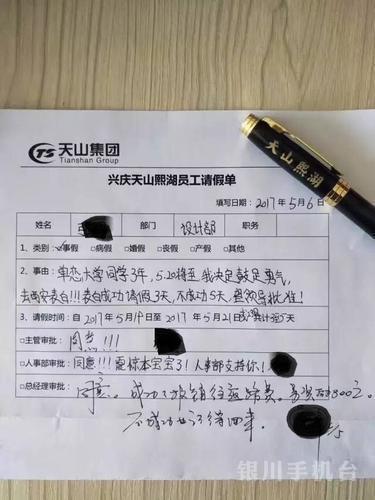 TS 天山集团
Tianshan Group
天山熙湖
兴庆天山熙湖员工请假单
填写日期：2017年5月6日
姓名 部门 设计部 职务
1、类别：☑事假 □病假 □婚假 □丧假 □产假 □其他
2、事由：单恋大学同学3年，5.20将至，我决定鼓足勇气，
去西安表白！！！表白成功请假3天，不成功5天，恳领导批准！
3、请假时间：自2017年5月19日至2017年5月21日 共计 5天
□主管审批：同意！！！
□人事部审批：同意！！！震惊本宝宝了！人事部支持你！
□总经理审批：同意。成功了报销往返路费，另资助800元。
不成功也记得回来。
5/5
银川手机台